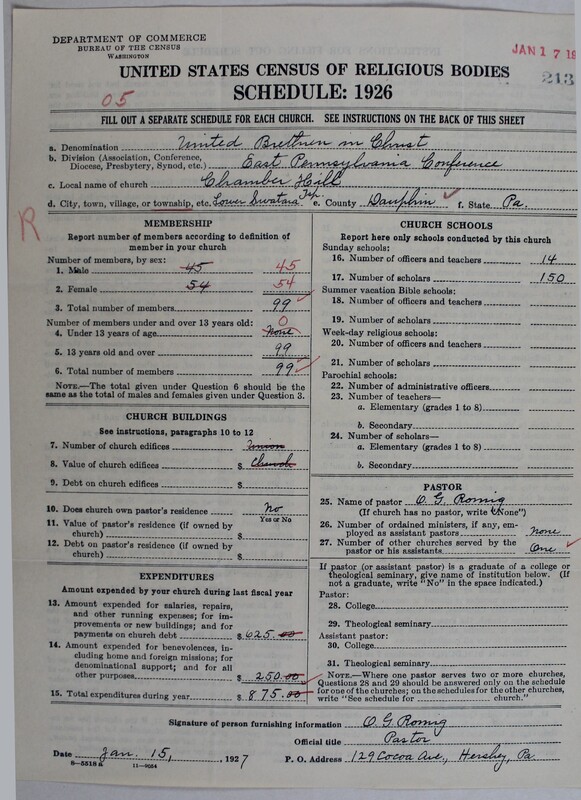 DEPARTMENT OF COMMERCE
BUREAU OF THE CENSUS
WASHINGTON
JAN 17 19
213
UNITED STATES CENSUS OF RELIGIOUS BODIES
SCHEDULE: 1926
05
FILL OUT A SEPARATE SCHEDULE FOR EACH CHURCH. SEE INSTRUCTIONS ON THE BACK OF THIS SHEET
a. Denomination United Brethren in Christ
b. Division (Association, Conference, Diocese, Presbytery, Synod, etc.) East Pennsylvania Conference
c. Local name of church Chamber Hill
d. City, town, village, or township, etc. Lower Swatara Twp. e. County Dauphin f. State Pa.
R
MEMBERSHIP
Report number of members according to definition of
member in your church
Number of members, by sex:
1. Male 45 45
2. Female 54 54
3. Total number of members 99
Number of members under and over 13 years old:
4. Under 13 years of age None 0
5. 13 years old and over 99
6. Total number of members 99
NOTE.—The total given under Question 6 should be the
same as the total of males and females given under Question 3.
CHURCH BUILDINGS
See instructions, paragraphs 10 to 12
7. Number of church edifices Union
8. Value of church edifices $ Church
9. Debt on church edifices $
10. Does church own pastor's residence No
Yes or No
11. Value of pastor's residence (if owned by
church) $
12. Debt on pastor's residence (if owned by
church) $
EXPENDITURES
Amount expended by your church during last fiscal year
13. Amount expended for salaries, repairs,
and other running expenses; for im-
provements or new buildings; and for
payments on church debt $ 625.00
14. Amount expended for benevolences, in-
cluding home and foreign missions; for
denominational support; and for all
other purposes $ 250.00
15. Total expenditures during year $ 875.00
CHURCH SCHOOLS
Report here only schools conducted by this church
Sunday schools:
16. Number of officers and teachers 14
17. Number of scholars 150
Summer vacation Bible schools:
18. Number of officers and teachers
19. Number of scholars
Week-day religious schools:
20. Number of officers and teachers
21. Number of scholars
Parochial schools:
22. Number of administrative officers
23. Number of teachers—
a. Elementary (grades 1 to 8)
b. Secondary
24. Number of scholars—
a. Elementary (grades 1 to 8)
b. Secondary
PASTOR
25. Name of pastor O. G. Romig
(If church has no pastor, write "None")
26. Number of ordained ministers, if any, em-
ployed as assistant pastors none
27. Number of other churches served by the
pastor or his assistants One
If pastor (or assistant pastor) is a graduate of a college or
theological seminary, give name of institution below. (If
not a graduate, write "No" in the space indicated.)
Pastor:
28. College
29. Theological seminary
Assistant pastor:
30. College
31. Theological seminary
NOTE.—Where one pastor serves two or more churches,
Questions 28 and 29 should be answered only on the schedule
for one of the churches; on the schedules for the other churches,
write "See schedule for church."
Signature of person furnishing information O. G. Romig
Official title Pastor
Date Jan. 15, 1927 P. O. Address 129 Cocoa Ave., Hershey, Pa.
8—5518a 11—9054